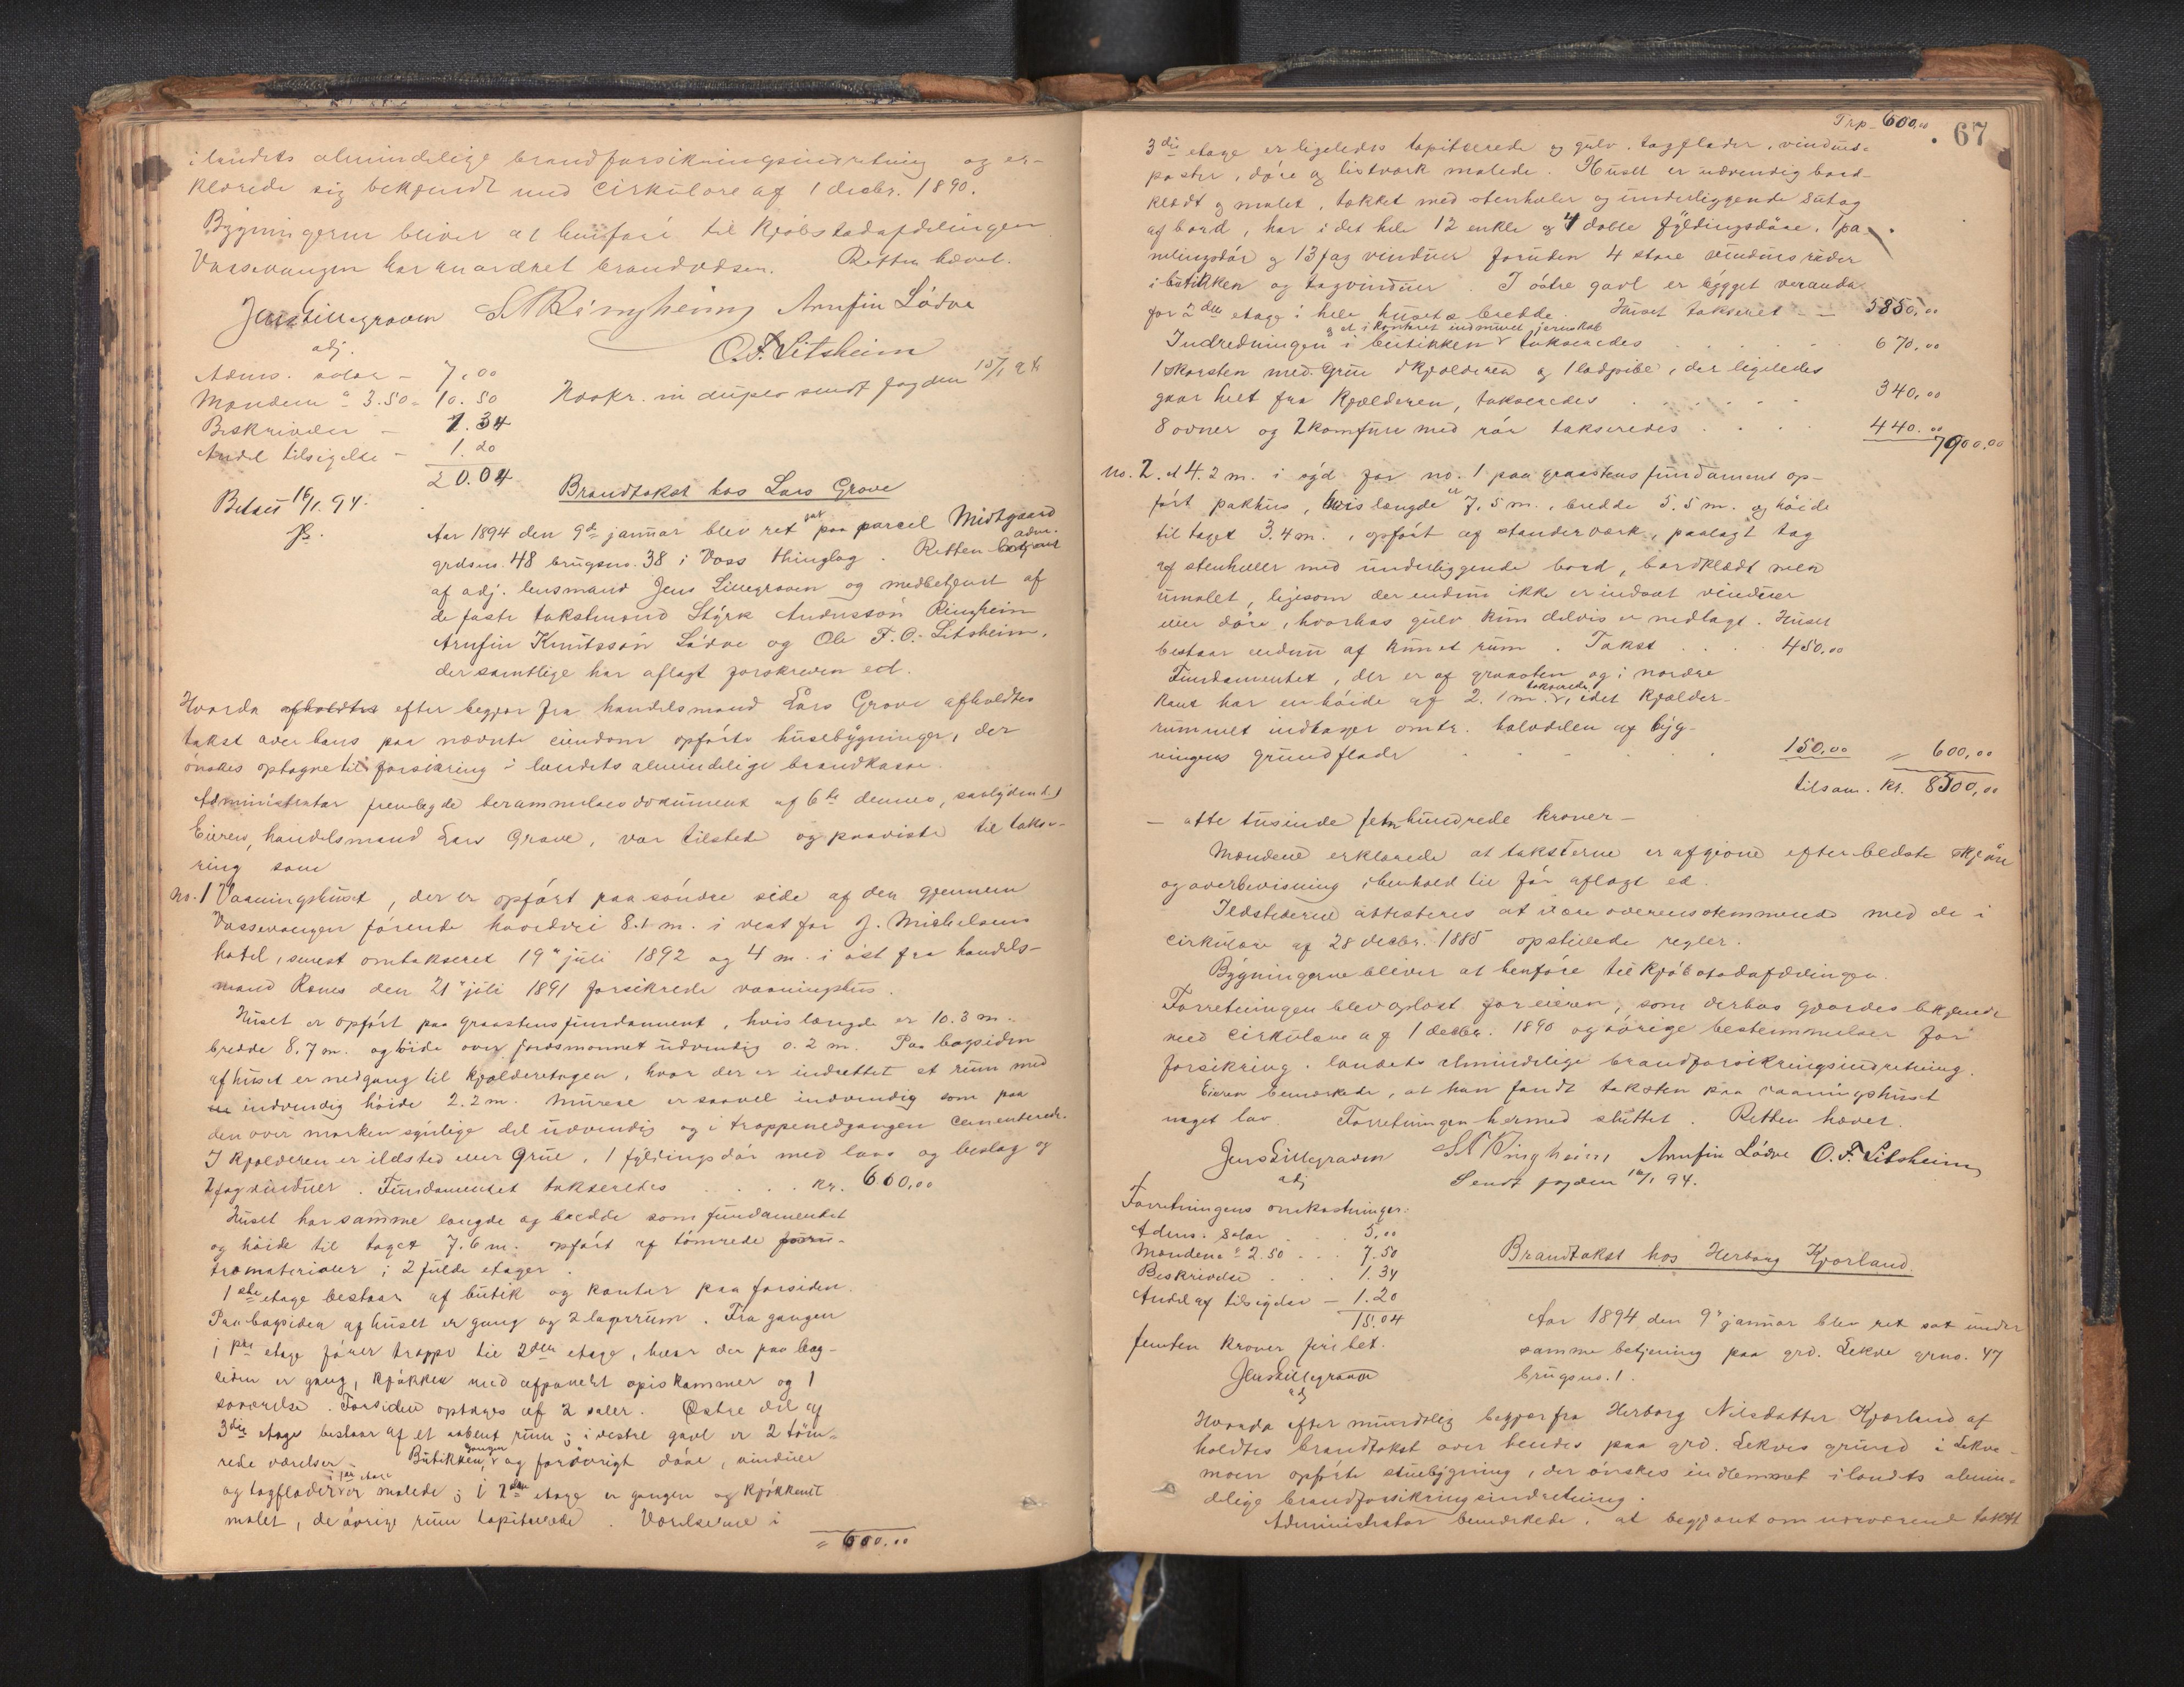 i landets almindelige brandforsikringsindretning og er-
klærede sig bekjendt med cirkulære af 1 decbr. 1890.
Bygningerne bliver at henføre til Kjøbstadafdelingen
Vossevangen har anordnet brandvæsen. Retten hævet.
Jens Lillegraven SARingheim Arnfin Lødve
adj. O.F. Litsheim
Adms. salær - 7.00
Mændene à 3.50 = 10.50 Udskr. in duplo sendt fogden 15/1 94
Beskrivelse - 1.34
Andel tilsigelse - 1.20
20.04
Betalt 16/1 94.
Brandtakst hos Lars Grove
Aar 1894 den 9de januar blev ret sat paa parcel Midtgaard
grdsno. 48 brugsno. 38 i Voss thinglag. Retten adm.
af adj. lensmand Jens Lillegraven og medbetjent af
de faste takstmænd Styrk Andersson Ringheim
Arnfin Knutsson Lødve og Ole F. O. Litsheim,
der samtlige har aflagt forskreven ed.
Hvorda afholdtes efter begjær fra handelsmand Lars Grove afholdtes
takst over hans paa nævnte eiendom opførte husebygninger, der
ønskes optagne til forsikring i landets almindelige brandkasse.
Administrator fremlagde berammelsesdokument af 6te dennes, saalydende
Eieren, handelsmand Lars Grove, var tilstede og paaviste til takse-
ring som
No. 1 Vaaningshuset, der er opført paa søndre side af den gjennem
Vossevangen førende hovedvei 8.1 m. i vest for J. Michelsens
hotel, senest omtakseret 19de juli 1892 og 4 m. i øst fra handels-
mand Rones den 21de juli 1891 forsikrede vaaningshus.
Huset er opført paa graastensfundament, hvis længde er 10.3 m.
bredde 8.7 m. og høide over jordsmonnet udvendig 0.2 m. Paa bagsiden
af huset er nedgang til kjælderetagen, hvor der er indrettet et rum med
indvendig høide 2.2 m. Murene er saavel indvendig som paa
den over marken synlige del udvendig og i trappenedgangen cementerede.
I kjælderen er ildsted eller grue, 1 fyldingsdør med laas og beslag og
2 fag vinduer. Fundamentet takseredes . . . . kr. 600,00
Huset har samme længde og bredde som fundamentet
og høide til taget 7.6 m. opført af tømrede furu-
træmaterialer i 2 fulde etager.
1ste etage bestaar af butik og kontor paa forsiden.
Paa bagsiden af huset er gang og 2 lagerrum. Fra gangen
i 1ste etage fører trappe til 2den etage, hvor der paa bag-
siden er gang, kjøkken med afpanelt spiskammer og 1
soværelse. Forsiden optages af 2 saler. Østre del af
3die etage bestaar af et aabent rum; i vestre gavl er 2 tøm-
rede værelser. Butikken, gangen og forøvrigt døre, vinduer
og tagflader i 1ste etage er malede; i 2den etage er gangen og kjøkkenet
malet, de øvrige rum tapitserede. Værelserne i
" 600.00
Trp. 600,00
67
3die etage er ligeledes tapitserede og gulv, tagflader, vindues-
poster, døre og listværk malede. Huset er udvendig bord-
klædt og malet, tækket med stenheller og underliggende sutag
af bord, har i det hele 12 enkle og 4 doble fyldingsdøre, 1 pa-
nelingsdør og 13 fag vinduer foruden 4 store vinduesruder
i butikken og tagvinduer. I østre gavl er bygget veranda
for 2den etage i hele husets bredde. Huset takseret - - 5850,00
Indredningen i butikken og et i kontoret indmuret jernskab takseredes . . . . 670,00
1 skorsten med grue i kjælderen og 1 ladpibe, der ligeledes
gaar helt fra kjælderen, takseredes . . . . . 340,00
8 ovner og 2 komfure med rør takseredes . . . 440.00
7900,00
No. 2. et 4.2 m. i syd for no. 1 paa graastensfundament op-
ført pakhus, hvis længde er 7,5 m., bredde 5.5 m. og høide
til taget 3.4 m., opført af standerværk, paalagt tag
af stenheller med underliggende bord, bordklædt men
umalet, ligesom der endnu ikke er indsat vinduer
eller døre, hvorhos gulv kun delvis er nedlagt. Huset
bestaar endnu af kun et rum. Takst . . . 450.00
Fundamentet, der er af graasten og i nordre
kant har en høide af 2.1 m. takseredes, idet kjælder-
rummet indtager omtr. halvdelen af byg-
ningens grundflade . . . . . 150,00 " 600,00
tilsam. kr. 8500,00
- otte tusinde fem hundrede kroner -
Mændene erklærede at taksterne er afgivne efter bedste skjøn
og overbevisning i henhold til før aflagt ed.
Ildstederne attesteres at være overensstemmende med de i
cirkulære af 28 decbr. 1885 opstillede regler.
Bygningerne bliver at henføre til kjøbstadafdelingen.
Forretningen blev oplæst for eieren, som derhos gjordes bekjendt
med cirkulære af 1 decbr. 1890 og øvrige bestemmelser for
forsikring i landets almindelige brandforsikringsindretning.
Eieren bemærkede, at han fandt taksten paa vaaningshuset
noget lav. Forretningen hermed sluttet. Retten hævet.
Jens Lillegraven SARingheim Arnfin Lødve O.F. Litsheim
adj
Sendt fogden 16/1 94.
Forretningens omkostninger:
Adms. Salær . . 5,00
Mændene à 2.50 . . . 7.50
Beskrivelse . . . 1.34
Andel af tilsigelse - 1.20
15,04
femten kroner fire bet.
Jens Lillegraven
adj
Brandtakst hos Herborg Kjorland.
Aar 1894 den 9de januar blev ret sat under
samme betjening paa grd. Lekve grno. 47
brugsno. 1.
Hvorda efter mundtlig begjær fra Herborg Nilsdatter Kjorland af
holdtes brandtakst over hendes paa grd. Lekves grund i Lekve-
moen opførte stuebygning, der ønskes indlemmet i landets almin-
delige brandforsikringsindretning.
Administrator bemærkede, at begjært om nærværende takst